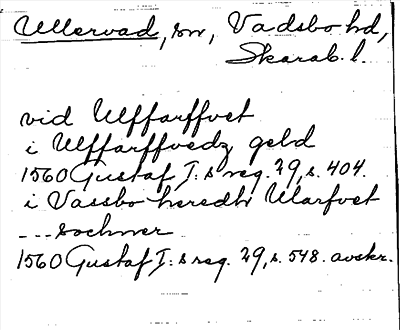 Ullervad, sn, Vadsbo hd,
Skarab. l.
vid Ulffarffvet
i Ulffarffvedz geld
1560 Gustaf I:s reg. 29, s. 404.
i Vassbo heredh Ularfvet
--- sochner
1560 Gustaf I:s reg. 29, s. 548. avskr.